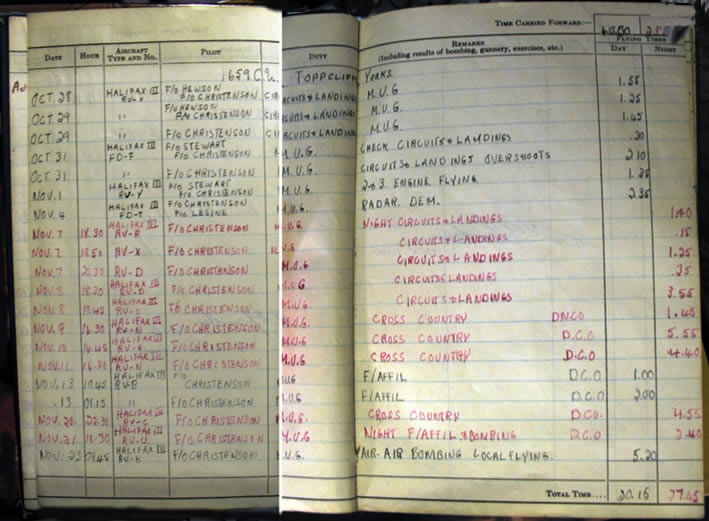 TIME CARRIED FORWARD:—
DATE HOUR AIRCRAFT TYPE AND NO. PILOT DUTY REMARKS (Including results of bombing, gunnery, exercises, etc.) FLYING TIMES DAY NIGHT
1659 C.U. TOPPCLIFFE YORKS.
OCT. 28 HALIFAX III F/O HENSON F/O CHRISTENSON CIRCUITS & LANDINGS M.U.G 1.55
OCT 29 " F/O HENSON F/O CHRISTENSON CIRCUITS & LANDINGS M.U.G. 1.25
OCT 29 " F/O CHRISTENSON CIRCUITS & LANDINGS M.U.G 1.45
OCT. 31 HALIFAX III FD-F F/O STEWART F/O CHRISTENSON M.U.G. CHECK CIRCUITS & LANDINGS .20
OCT 31 " F/O CHRISTENSON M.U.G. CIRCUITS & LANDINGS OVERSHOOTS 2.10
NOV. 1 HALIFAX III F/O STEWART F/O CHRISTENSON M.U.G. 2 & 3. ENGINE FLYING
NOV. 4 HALIFAX III FD-T F/O CHRISTENSON P/O LESINE M.U.G. RADAR. DEM. 2.35
NOV. 7 18.30 HALIFAX III RV-R F/O CHRISTENSON M.U.G NIGHT CIRCUITS & LANDINGS 1.40
NOV. 7 RV-X F/O CHRISTENSON M.U.G CIRCUITS & LANDINGS .15
NOV. 7 20.30 RV-D F/O CHRISTENSON M.U.G CIRCUITS & LANDINGS 1.25
NOV. 8 18.20 HALIFAX III RV-D F/O CHRISTENSON M.U.G CIRCUITS & LANDINGS
NOV. 8 HALIFAX III F/O CHRISTENSON M.U.G. CIRCUITS & LANDINGS 3.55
NOV. 9 16.30 HALIFAX III RV-N F/O CHRISTENSON M.U.G. CROSS COUNTRY DNCO 1.45
NOV. 10 16.45 HALIFAX III F/O CHRISTENSON M.U.G. CROSS COUNTRY D.C.O 5.55
NOV. 11 HALIFAX III RV-N F/O CHRISTENSON M.U.G. CROSS COUNTRY D.C.O 4.40
NOV. 13 10.45 HALIFAX III RV-B F/O CHRISTENSON M.U.G F/AFFIL D.C.O 1.00
13 01.15 " F/O CHRISTENSON M.U.G. F/AFFIL D.C.O 2.00
NOV. 20. 22.30 HALIFAX III RV-C F/O CHRISTENSON M.U.G. CROSS COUNTRY D.C.O. 4.55
NOV. 21 18.30 HALIFAX III RV-U F/O CHRISTENSON M.U.G NIGHT F/AFFIL & BOMBING D.C.O
NOV. 23 HALIFAX III RV-K F/O CHRISTENSON M.U.G. AIR-AIR BOMBING LOCAL FLYING. 5.20
TOTAL TIME.... 20.15 27.45